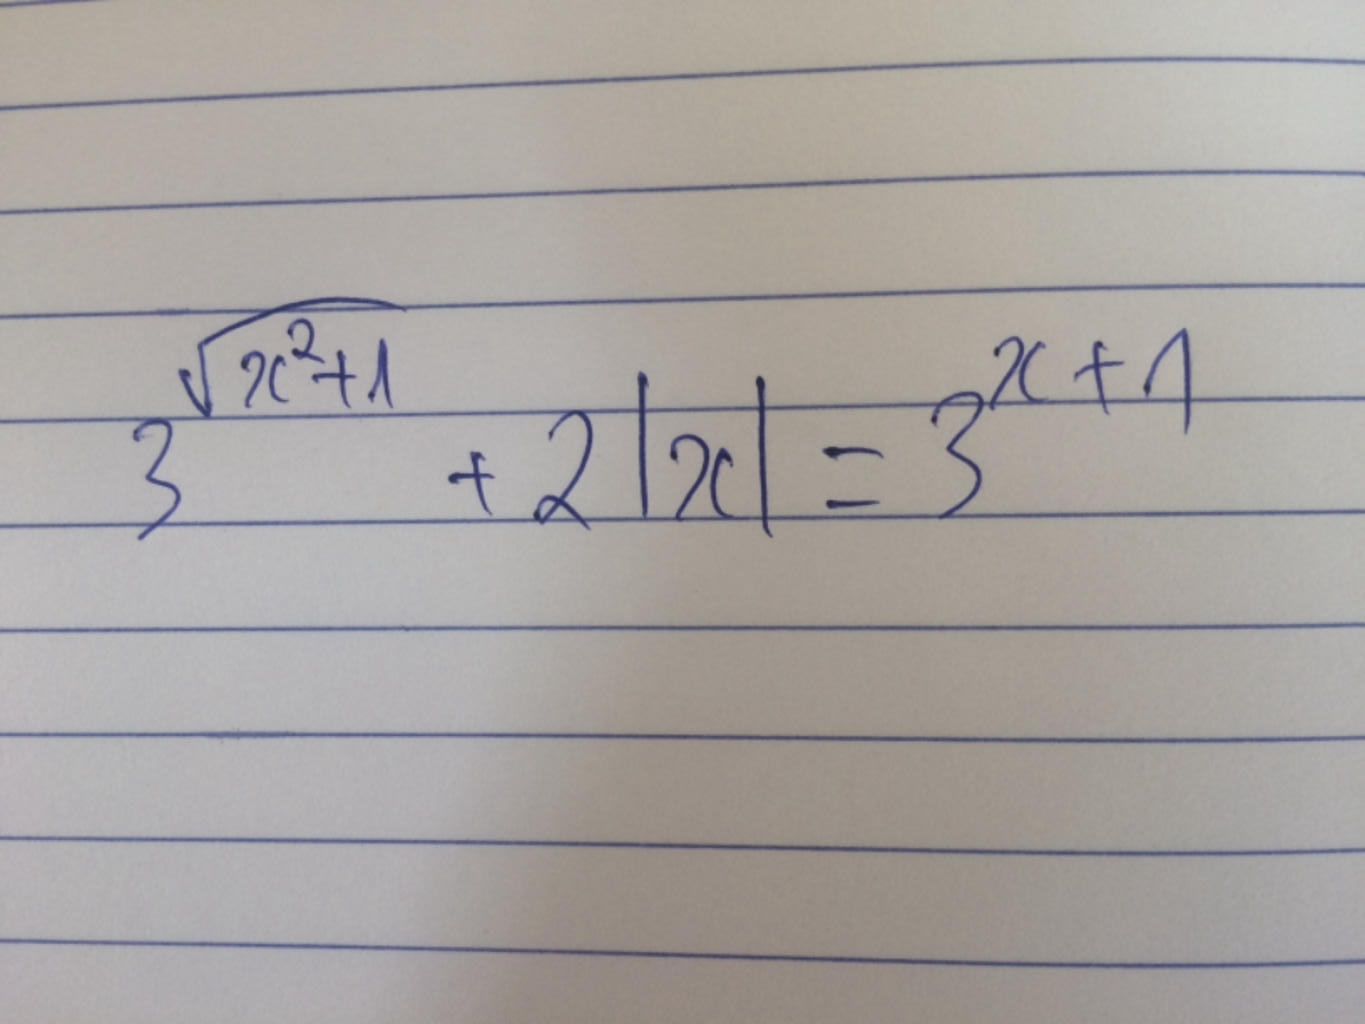 3^√(x²+1) + 2|x| = 3^(x+1)